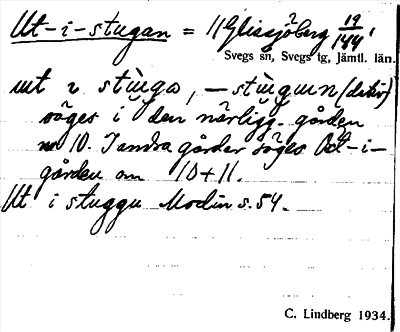 Ut-i-stugan = 11 Glissjöberg 19/144,
Svegs sn, Svegs tg, Jämtl. län.
ut i stùga, – stùgun (dativ)
säges i den närligg. gården
no 10. I andra gårdar säges Öst-i-
gården om 10+11.
Ut i stuggu Modin s. 54.
C. Lindberg 1934.